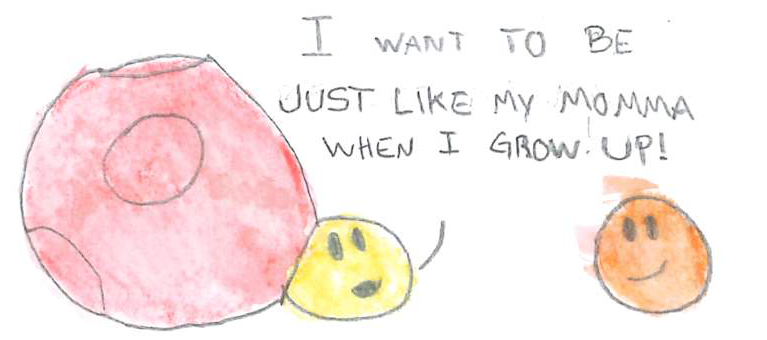 I WANT TO BE
JUST LIKE MY MOMMA
WHEN I GROW UP!